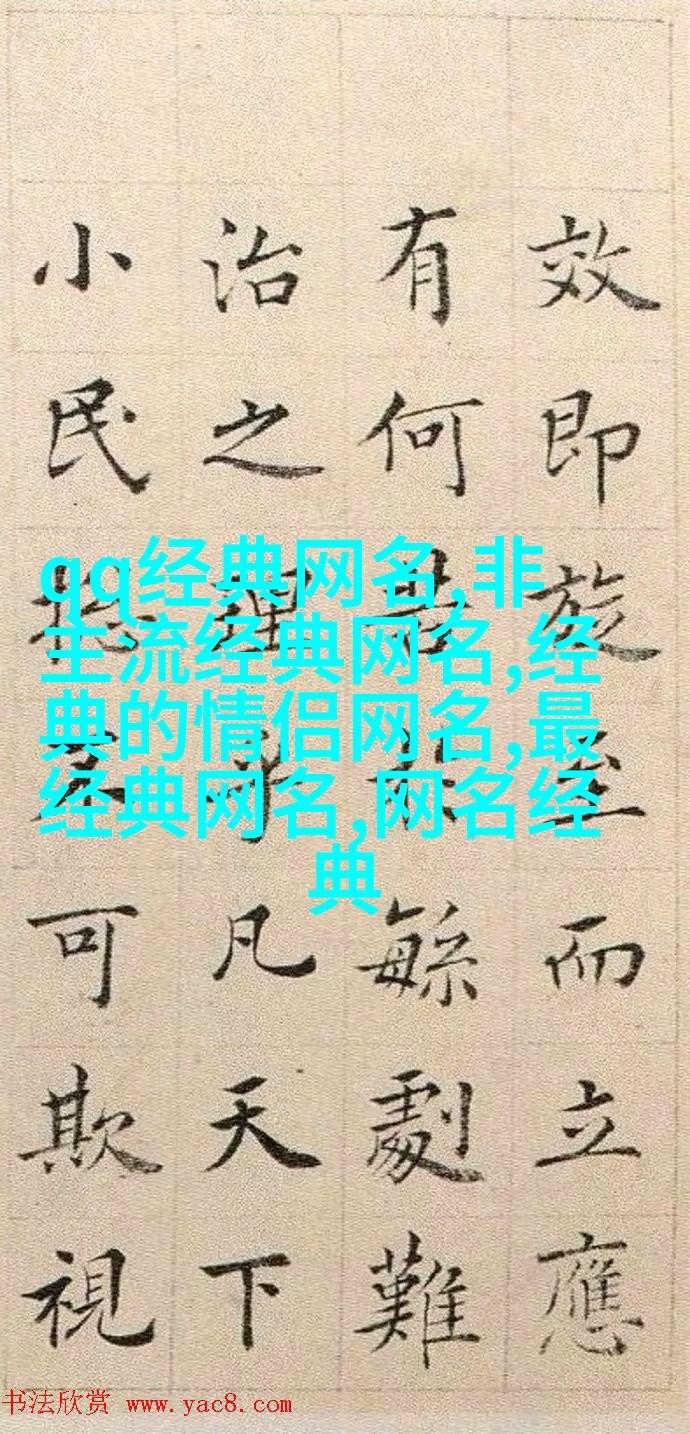 效即旋至而立應
有何緐劇難
治之理凡天下
小民不可欺視
qq经典网名,非
主流经典网名,经
典的情侣网名,最
经典网名,网名经
典
书法欣赏 www.yac8.com